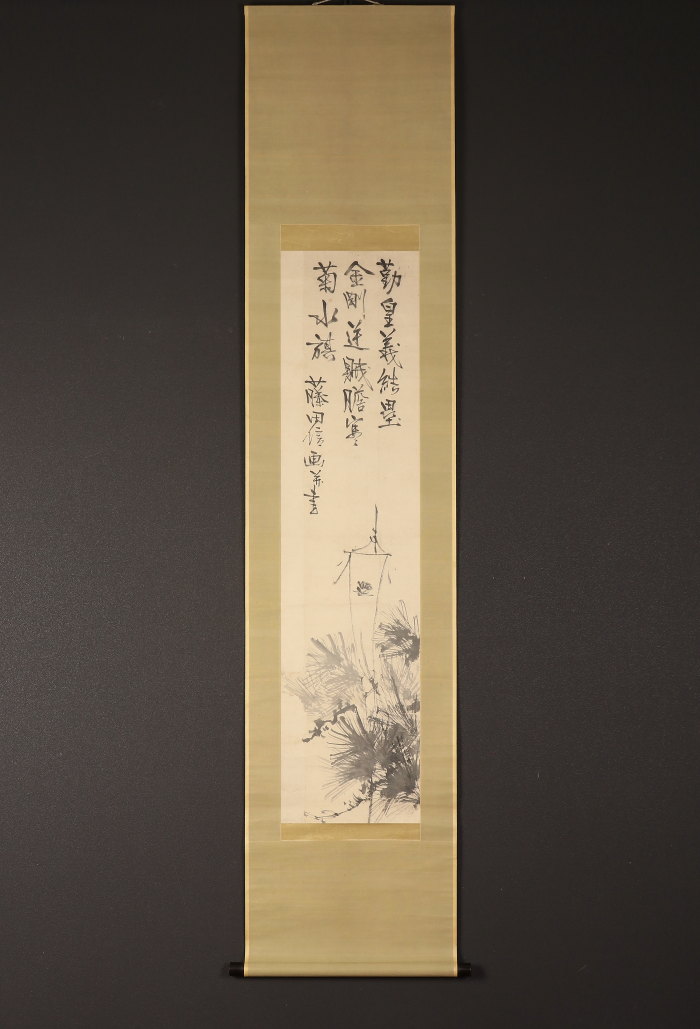 勤皇義結塁
金剛逆賊膽寒
菊水旗 藤田信画并書